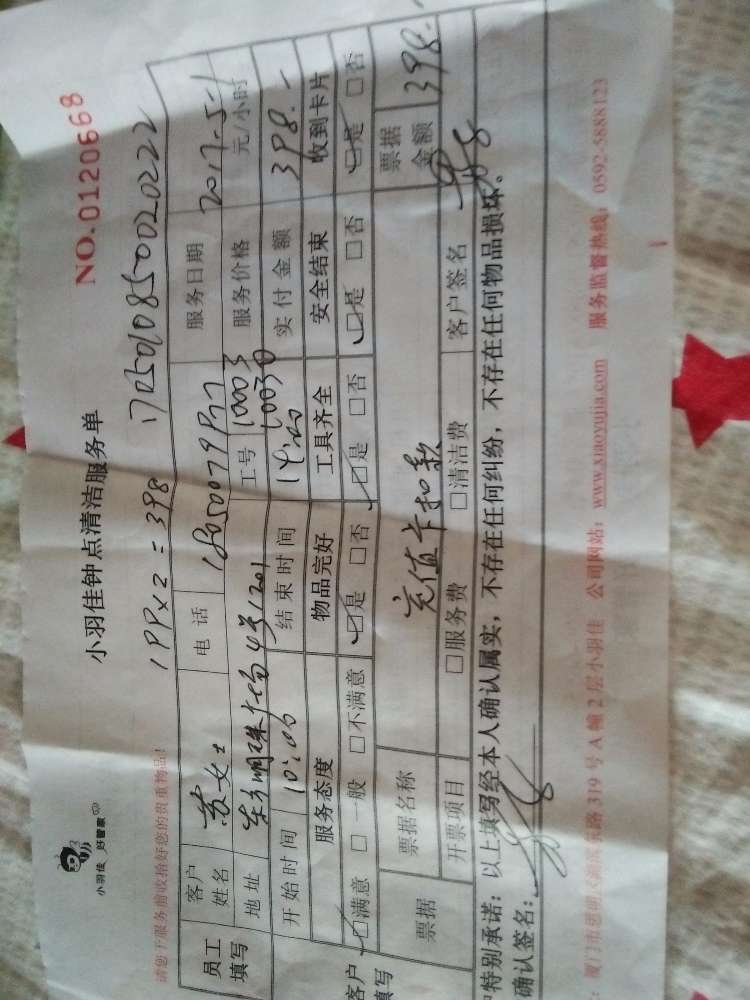 小羽佳 好管家
小羽佳钟点清洁服务单
NO.0120668
请您于服务前收拾好您的贵重物品!
199x2=398
员工填写
客户姓名 苏女士 电话 服务日期 2017-5-1
地址 东方明珠广场4号1201 工号 10003 10050 服务价格 元/小时
开始时间 10:00 结束时间 14:00 实付金额 398.-
服务态度 物品完好 工具齐全 安全结束 收到卡片
客户填写
☑满意 □一般 □不满意 ☑是 □否 ☑是 □否 ☑是 □否 ☑是 □否
票据 票据名称 充值卡扣款 票据金额 398.
开票项目 □服务费 □清洁费 客户签名
特别承诺:以上填写经本人确认属实,不存在任何纠纷,不存在任何物品损坏。
确认签名:
厦门市思明区湖滨东路319号A幢2层小羽佳 公司网站:www.xiaoyujia.com 服务监督热线:0592-5888123